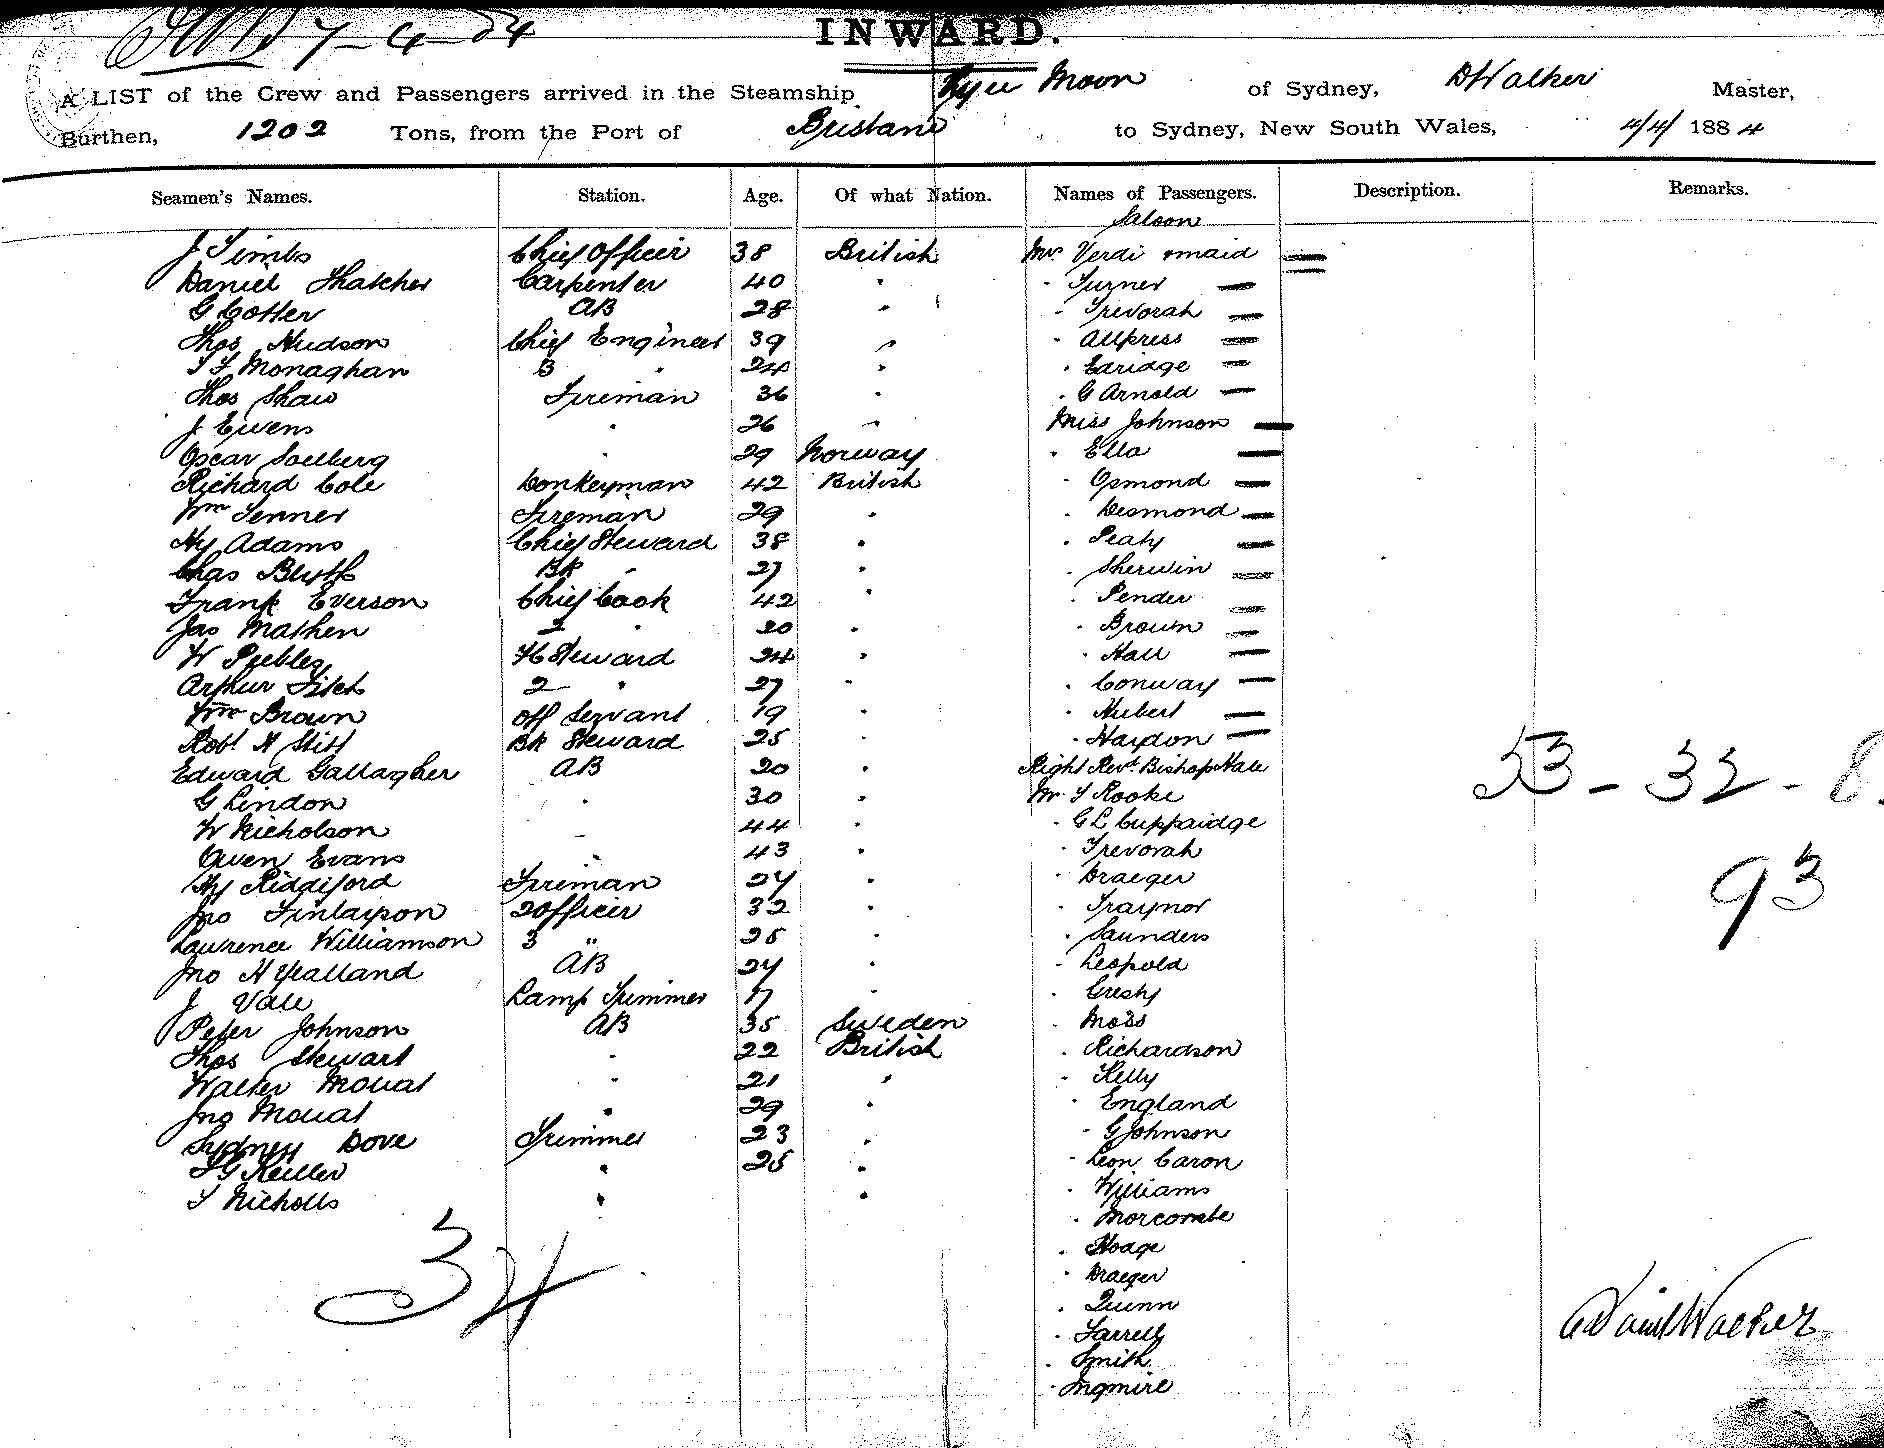 7-4-84
INWARD.
A LIST of the Crew and Passengers arrived in the Steamship Moon of Sydney, D Walker Master,
Burthen, 1202 Tons, from the Port of Brisbane to Sydney, New South Wales, 4/4/ 1884
Seamen's Names. Station. Age. Of what Nation. Names of Passengers. Description. Remarks.
Saloon
J Timbs Chief Officer 38 British Mrs Verdi & maid
Daniel Thatcher Carpenter 40 " " Turner
G Cotter AB 28 " " Trevorah
Thos Hudson Chief Engineer 39 " " Allpress
T F Monaghan 3 " 24 " " Edridge
Thos Shaw Fireman 36 " " G Arnold
J Ewens " 26 " Miss Johnson
Oscar Soelberg " 29 Norway " Ella
Richard Cole Donkeyman 42 British " Osmond
Wm Jenner Fireman 29 " " Desmond
Hy Adams Chief Steward 38 " " Peaty
Chas Blyth BR " 27 " " Sherwin
Frank Everson Chief Cook 42 " " Pender
Jas Mathen 2 " 20 " " Brown
W Peebles FC Steward 24 " " Hall
Arthur Fitch 2 " 27 " " Conway
Wm Brown Off Servant 19 " " Hubert
Robt H Stitt BR Steward 25 " " Haydon
Edward Gallagher AB 20 " Right Revd. Bishop Hale
G Lindon " 30 " Mr T Rooke
W Nicholson " 44 " " G L Cuppaidge
Owen Evans " 43 " " Trevorah
Hy Riddiford Fireman 24 " " Draeger
Jno Finlayson 2 Officer 32 " " Traynor
Lawrence Williamson 3 " 25 " " Saunders
Jno H Yealland AB 24 " " Leopold
J Vale Lamp Trimmer 17 " " Cresty
Peter Johnson AB 35 Sweden " Moss
Thos Stewart " 22 British " Richardson
Walter Mouat " 21 " " Kelly
Jno Mouat " 29 " " England
Sydney Dove Trimmer 23 " " G Johnson
T G Keiller " 25 " " Leon Caron
T Nicholls " " " Williams
" Morcombe
" Hodge
" Draeger
" Quinn
" Farrell
" Smith
" Ingmire
53 - 32 - 8.
93
34
Danl Walker